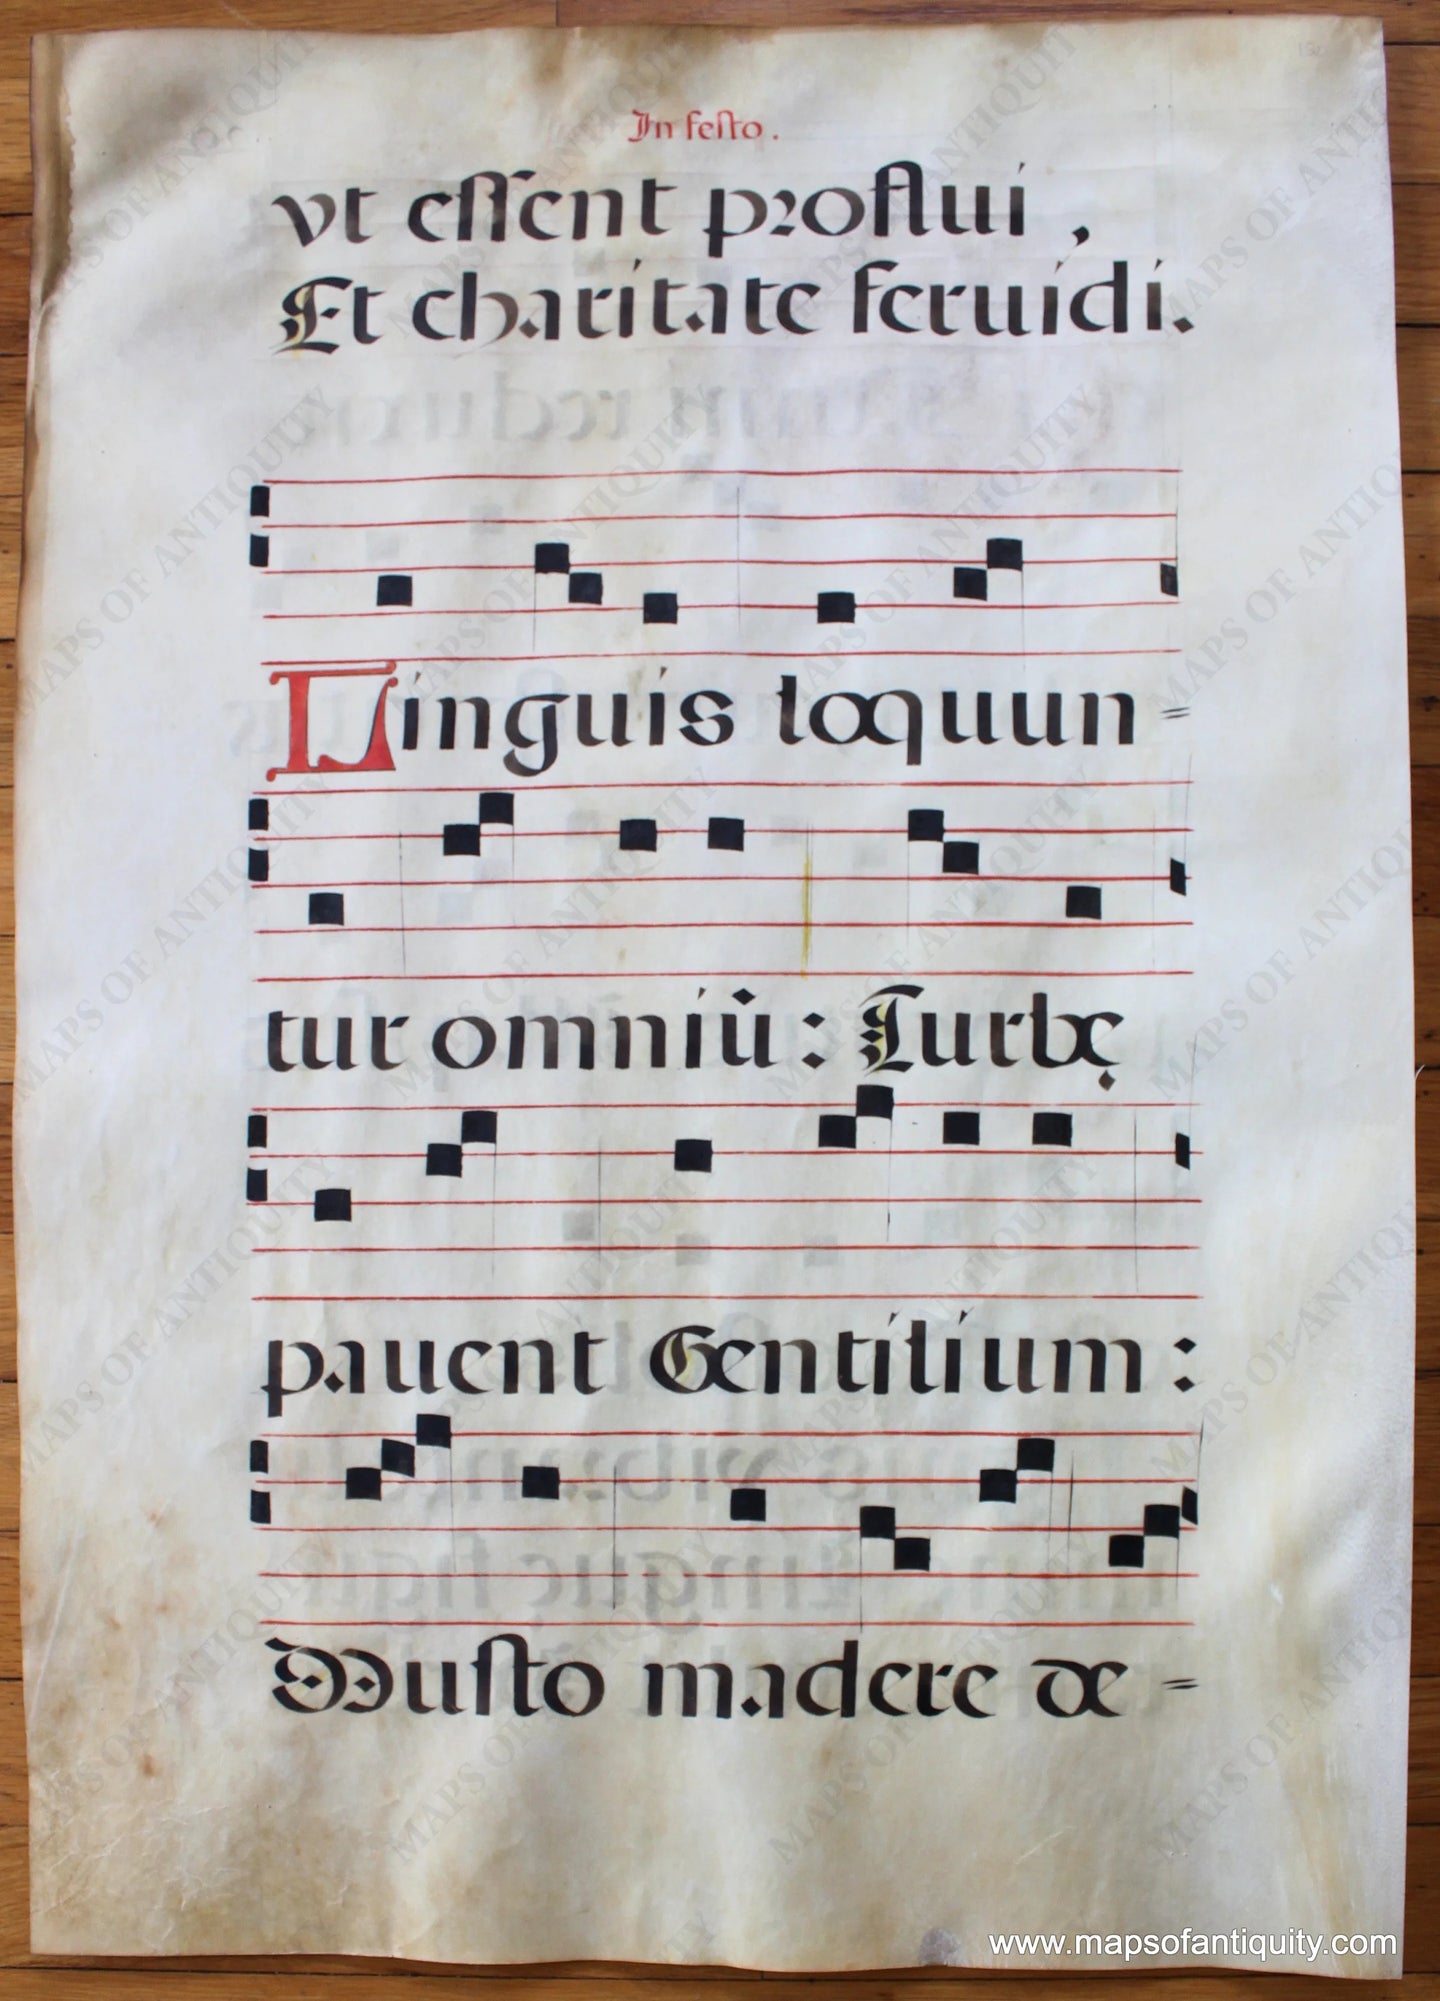 In festo.
vt essent proflui,
Et charitate feruidi.
Linguis loquun=
tur omniū: Turbę
pauent Gentilium:
Musto madere de=
www.mapsofantiquity.com